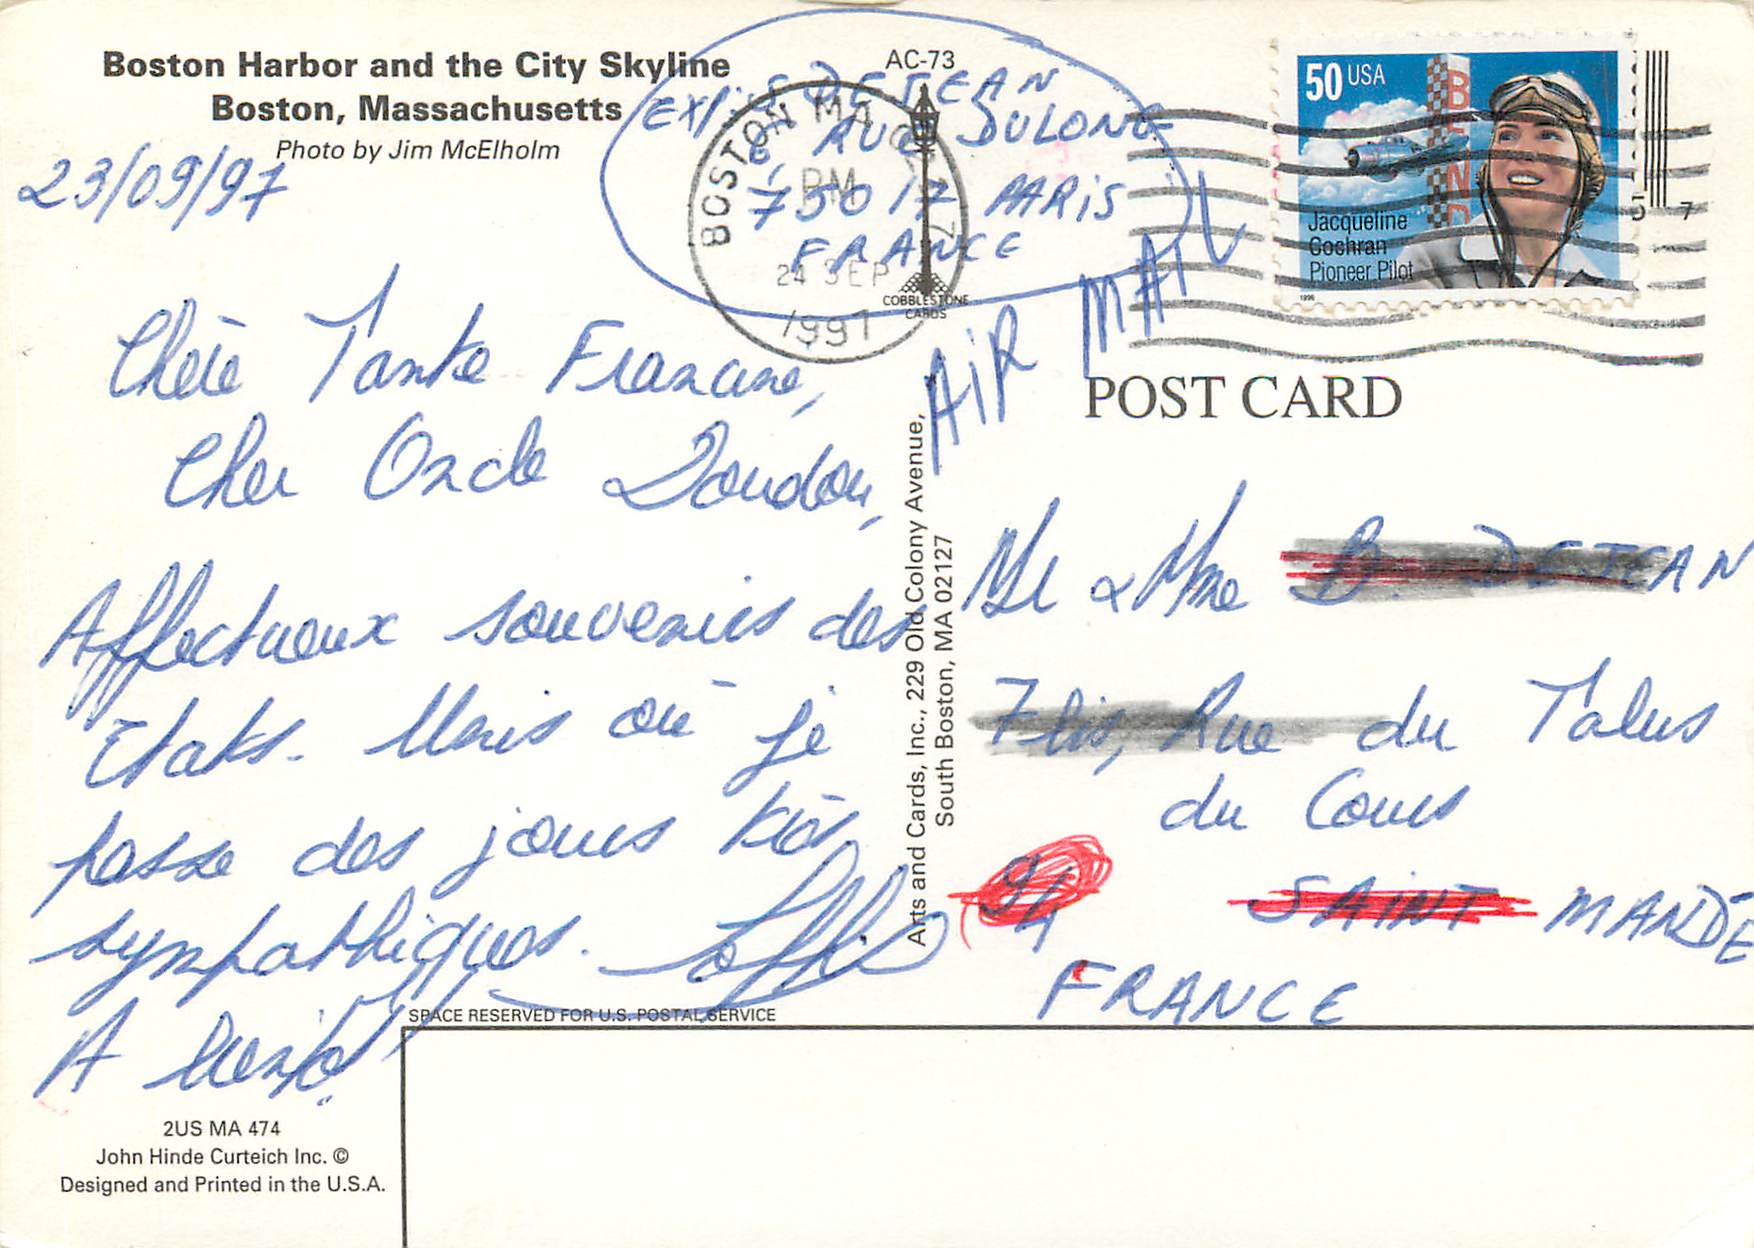 Boston Harbor and the City Skyline
Boston, Massachusetts
Photo by Jim McElholm
23/09/97
AC-73
DEJEAN
RUE DULONG
75017 PARIS
FRANCE
BOSTON MA
PM
24 SEP
1997
COBBLESTONE
CARDS
50 USA
BEND
Jacqueline
Cochran
Pioneer Pilot
1996
AIR MAIL
POST CARD
Chère Tante Francine,
Cher Oncle Doudou,
Affectueux souvenirs des
Etats- Unis où je
passe des jours très
sympathiques.
A bientôt
Arts and Cards, Inc., 229 Old Colony Avenue,
South Boston, MA 02127
Ml & Mme B. DEJEAN
7 bis, Rue du Talus
du Cours
94 SAINT MANDÉ
FRANCE
SPACE RESERVED FOR U.S. POSTAL SERVICE
2US MA 474
John Hinde Curteich Inc. ©
Designed and Printed in the U.S.A.